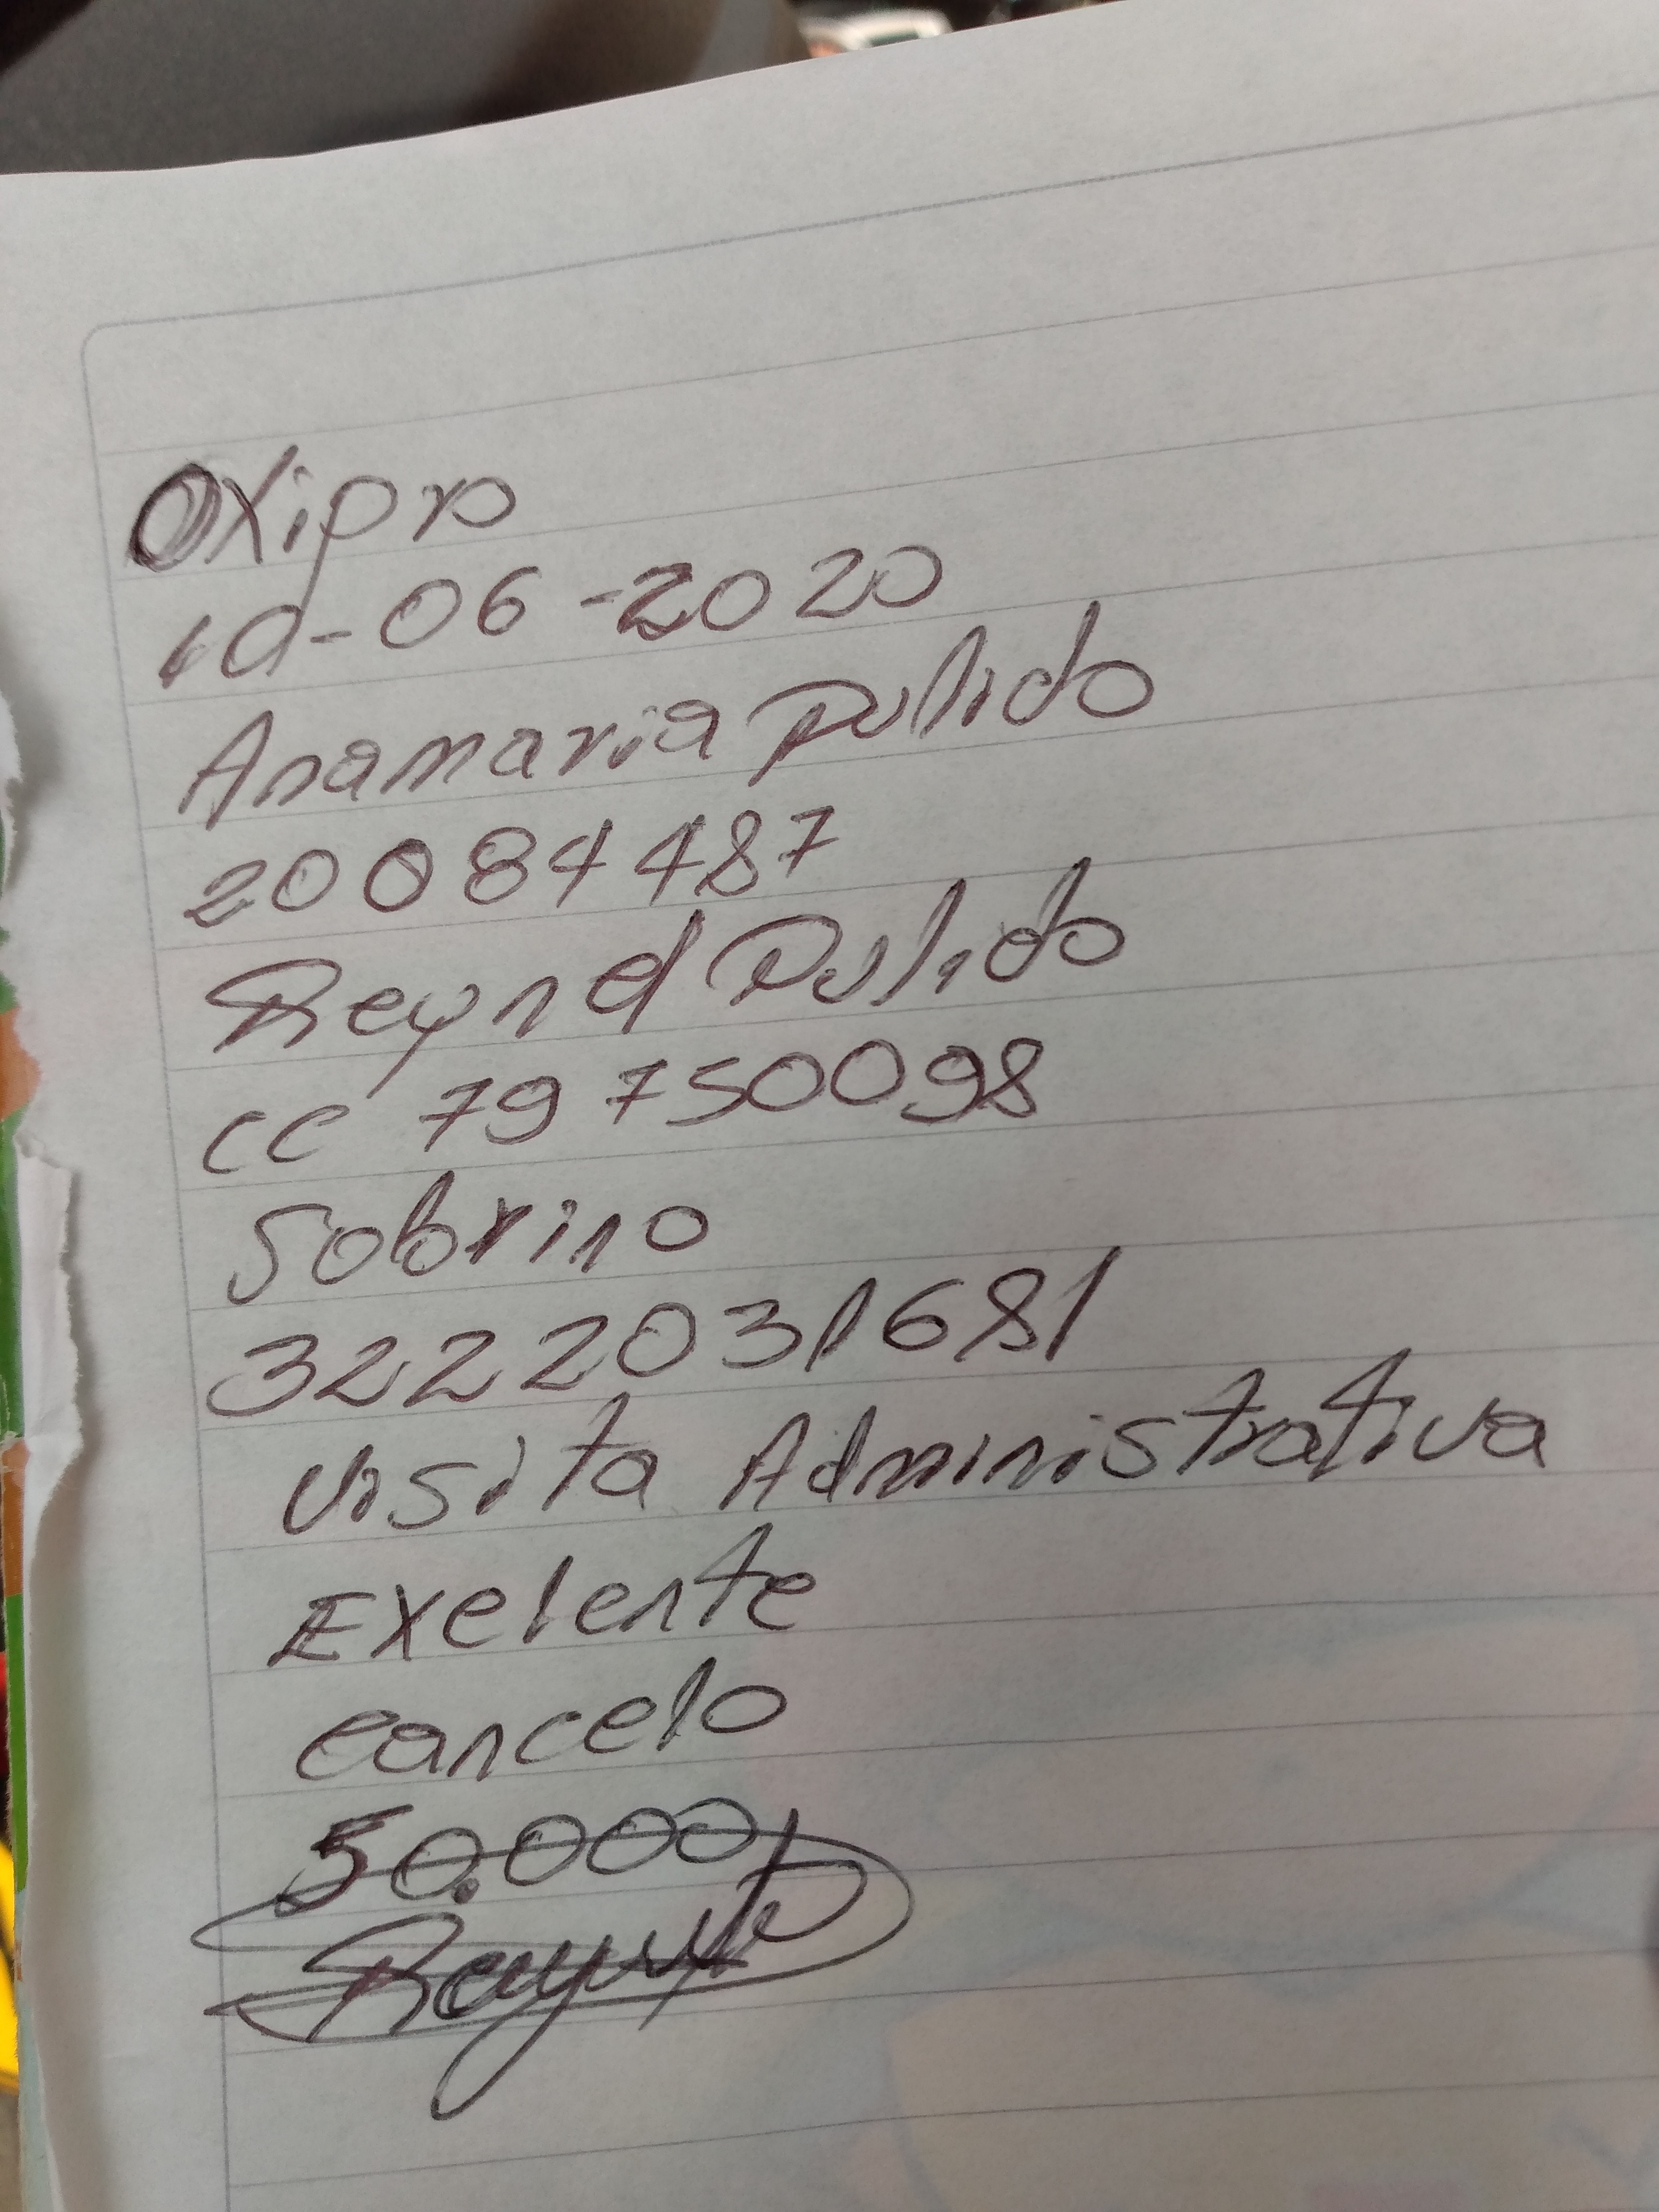 Oxipro
10-06-2020
Anamaria Pulido
20084487
Reynel Pulido
CC 79750098
Sobrino
3222031681
Visita Administrativa
Exelente
Cancelo
50.000